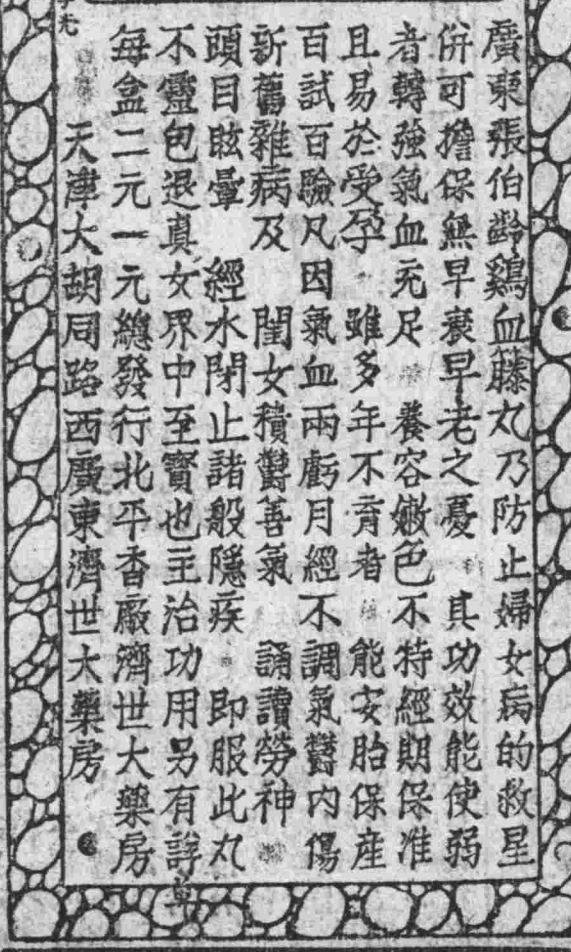 廣東張伯齡鷄血藤丸乃防止婦女病的救星
併可擔保無早衰早老之憂 其功效能使弱
者轉強氣血充足 養容嫩色不特經期保准
且易於受孕 雖多年不育者 能安胎保產
百試百驗凡因氣血兩虧月經不調氣鬱內傷
新舊雜病及 閨女積鬱善氣 誦讀勞神
頭目眩暈 經水閉止諸般隱疾 即服此丸
不靈包退真女界中至寳也主治功用另有詳章
每盒二元一元總發行北平香廠濟世大藥房
天津大胡同路西廣東濟世大藥房